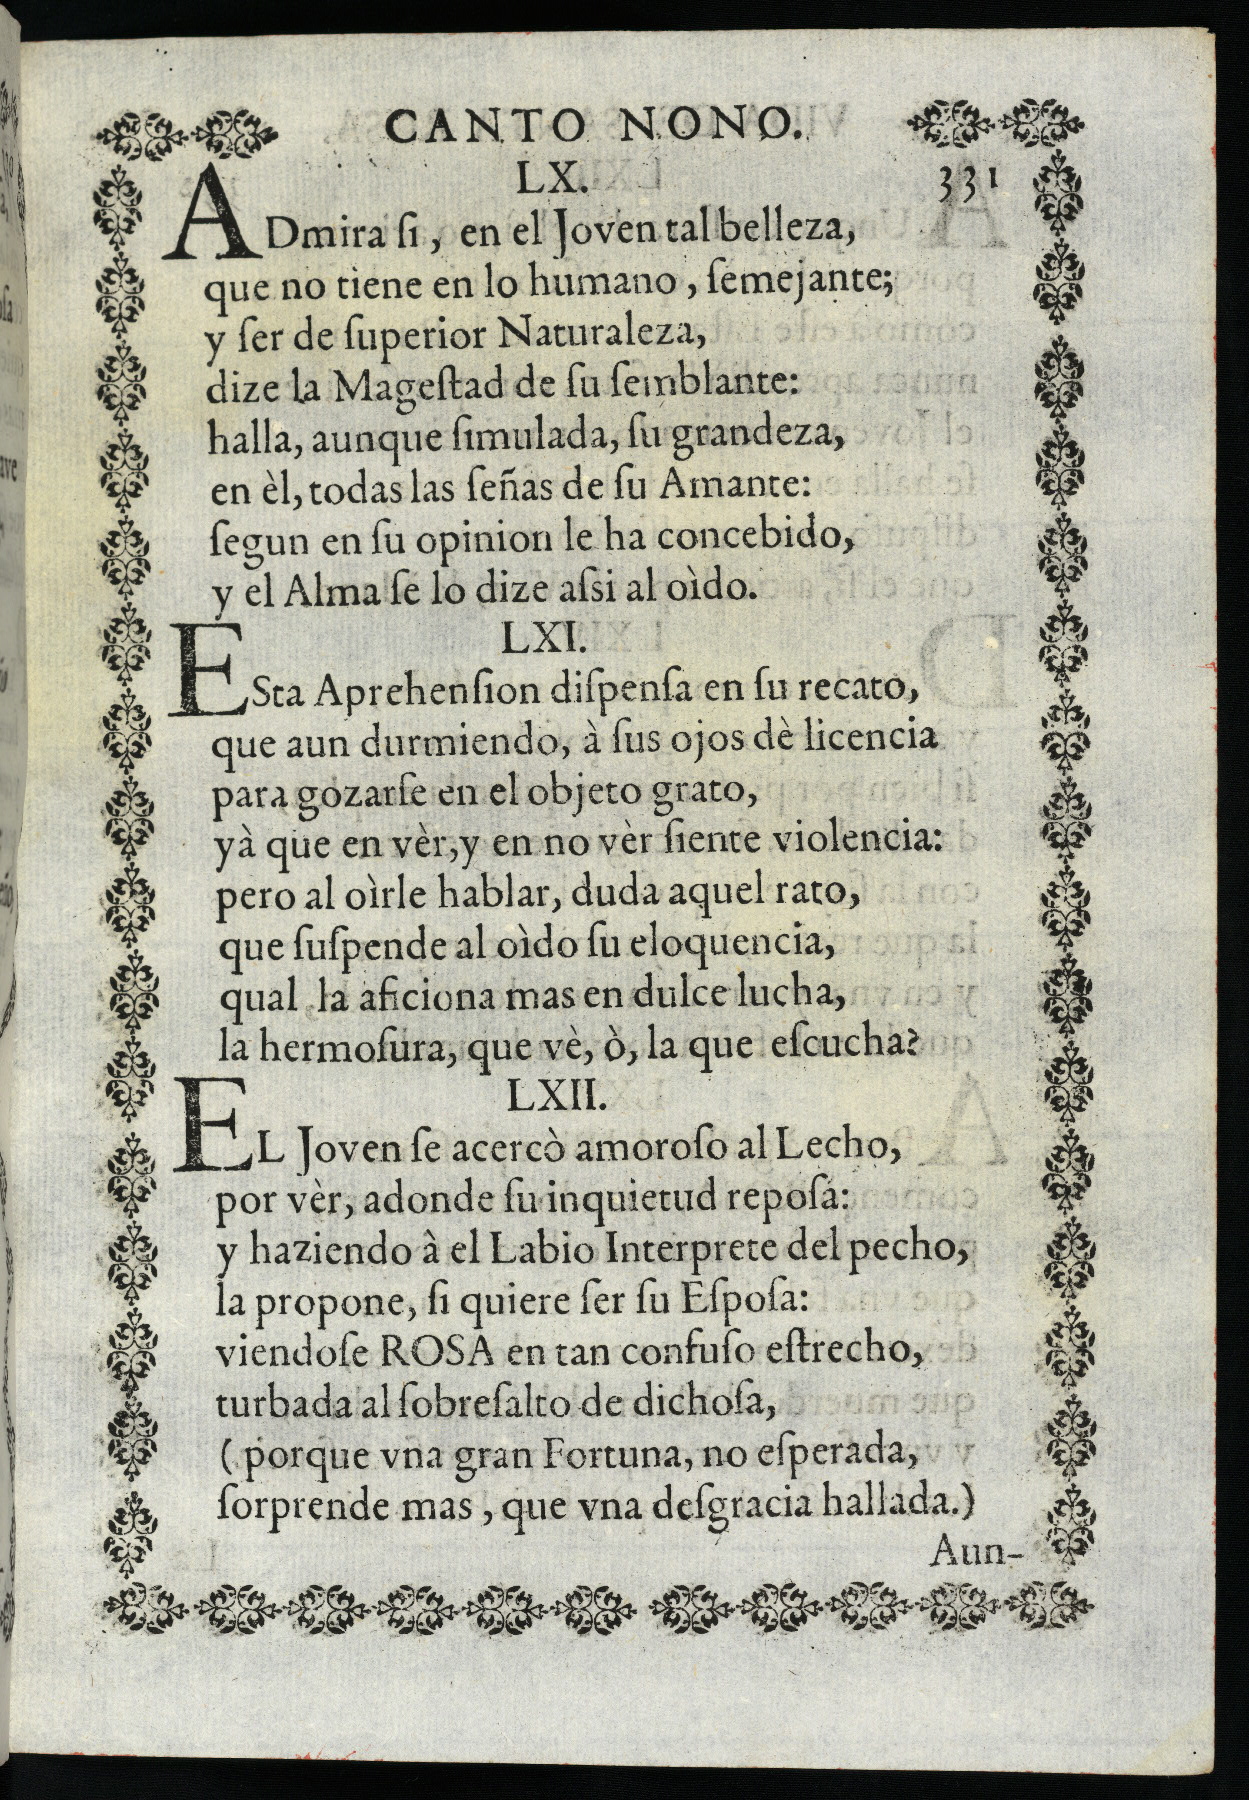 CANTO NONO.
LX. 331
ADmira ſi, en el Joven tal belleza,
que no tiene en lo humano, ſemejante;
y ſer de ſuperior Naturaleza,
dize la Mageſtad de ſu ſemblante:
halla, aunque ſimulada, ſu grandeza,
en èl, todas las ſeñas de ſu Amante:
ſegun en ſu opinion le ha concebido,
y el Alma ſe lo dize aſsi al oìdo.
LXI.
ESta Aprehenſion diſpenſa en ſu recato,
que aun durmiendo, à ſus ojos dè licencia
para gozarſe en el objeto grato,
yà que en vèr, y en no vèr ſiente violencia:
pero al oìrle hablar, duda aquel rato,
que ſuſpende al oìdo ſu eloquencia,
qual la aficiona mas en dulce lucha,
la hermoſura, que vè, ò, la que eſcucha?
LXII.
EL Joven ſe acercò amoroſo al Lecho,
por vèr, adonde ſu inquietud repoſa:
y haziendo à el Labio Interprete del pecho,
la propone, ſi quiere ſer ſu Eſpoſa:
viendoſe ROSA en tan confuſo eſtrecho,
turbada al ſobreſalto de dichoſa,
(porque vna gran Fortuna, no eſperada,
ſorprende mas, que vna deſgracia hallada.)
Aun-